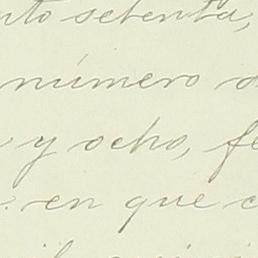 nto setenta,
número
y ocho, fe
en que c